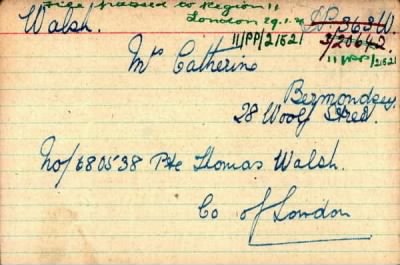 File passed to Region 11
London 29.1.
Walsh. DP. 3634.
11/PP/21521 3/20642.
11/PP/21521
Mrs Catherine
Bermondsey.
28 Woolf Street.
No/680538 Pte Thomas Walsh.
Co of London